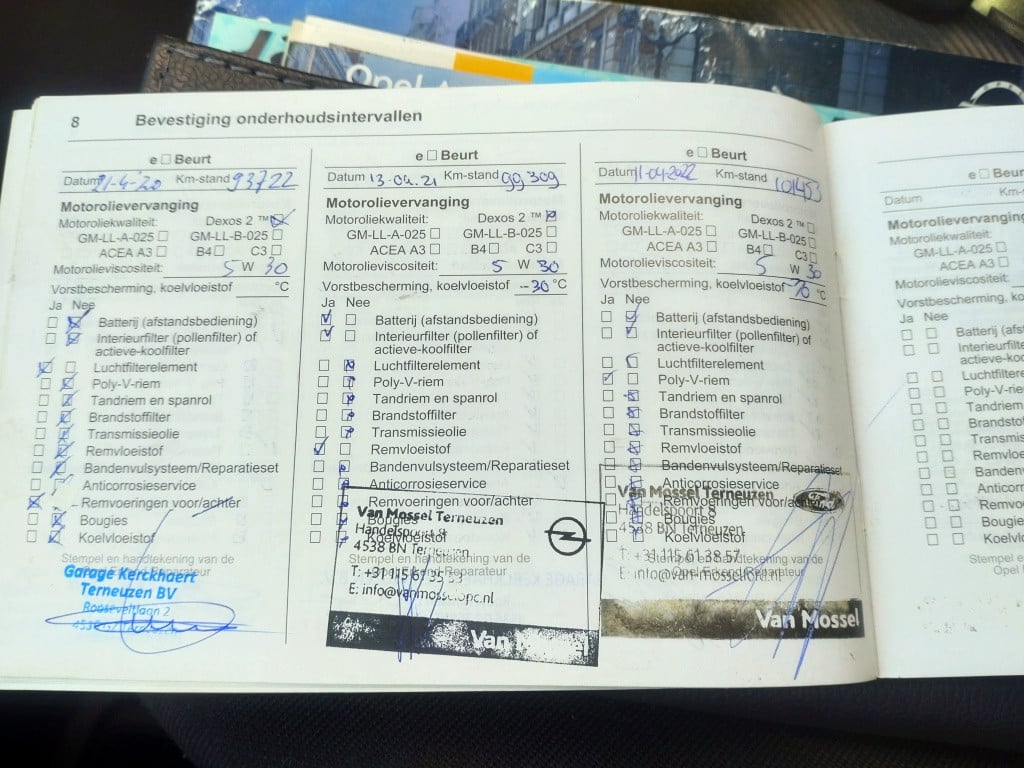 Opel
8 Bevestiging onderhoudsintervallen
e ☐ Beurt
Datum 21-4-'20 Km-stand 93722
Motorolievervanging
Motoroliekwaliteit: Dexos 2 ™
GM-LL-A-025 ☐ GM-LL-B-025 ☐
ACEA A3 ☐ B4 ☐ C3 ☐
Motorolieviscositeit: 5 W 30
Vorstbescherming, koelvloeistof °C
Ja Nee
Batterij (afstandsbediening)
Interieurfilter (pollenfilter) of
actieve-koolfilter
Luchtfilterelement
Poly-V-riem
Tandriem en spanrol
Brandstoffilter
Transmissieolie
Remvloeistof
Bandenvulsysteem/Reparatieset
Anticorrosieservice
Remvoeringen voor/achter
Bougies
Koelvloeistof
Stempel en handtekening van de
Reparateur
Garage Kerckhaert
Terneuzen BV
Rooseveltlaan 2
e ☐ Beurt
Datum 13-04-21 Km-stand 99309
Motorolievervanging
Motoroliekwaliteit: Dexos 2 ™
GM-LL-A-025 ☐ GM-LL-B-025 ☐
ACEA A3 ☐ B4 ☐ C3 ☐
Motorolieviscositeit: 5 W 30
Vorstbescherming, koelvloeistof -30 °C
Ja Nee
Batterij (afstandsbediening)
Interieurfilter (pollenfilter) of
actieve-koolfilter
Luchtfilterelement
Poly-V-riem
Tandriem en spanrol
Brandstoffilter
Transmissieolie
Remvloeistof
Bandenvulsysteem/Reparatieset
Anticorrosieservice
Remvoeringen voor/achter
Bougies
Koelvloeistof
Stempel en handtekening van de
Reparateur
Van Mossel Terneuzen
Handelspoort 8
4538 BN Terneuzen
E: info@vanmosselopel.nl
Van Mossel
e ☐ Beurt
Datum 11-04-2022 Km-stand 101453
Motorolievervanging
Motoroliekwaliteit: Dexos 2 ™ ☐
GM-LL-A-025 ☐ GM-LL-B-025 ☐
ACEA A3 ☐ B4 ☐ C3 ☐
Motorolieviscositeit: 5 W 30
Vorstbescherming, koelvloeistof °C
Ja Nee
Batterij (afstandsbediening)
Interieurfilter (pollenfilter) of
actieve-koolfilter
Luchtfilterelement
Poly-V-riem
Tandriem en spanrol
Brandstoffilter
Transmissieolie
Remvloeistof
Bandenvulsysteem/Reparatieset
Anticorrosieservice
Remvoeringen voor/achter
Bougies
Koelvloeistof
Stempel en handtekening van de
Opel Erkend Reparateur
Van Mossel Terneuzen
Handelspoort 8
4538 BN Terneuzen
T: +31 115 61 38 57
E: info@vanmosselford.nl
Van Mossel
e ☐ Beurt
Datum Km
Motorolievervanging
Motoroliekwaliteit:
GM-LL-A-025 ☐
ACEA A3 ☐
Motorolieviscositeit:
Vorstbescherming, koelv
Ja Nee
Batterij (afstands
Interieurfilter
actieve-koo
Luchtfiltere
Poly-V-riem
Tandriem
Brandstof
Transmis
Remvloei
Bandenv
Anticorr
Remvo
Bougie
Koelvl
Stempel en
Opel